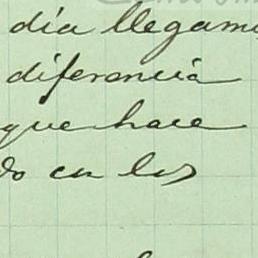 día llegamo
diferencia
que hace
do en los